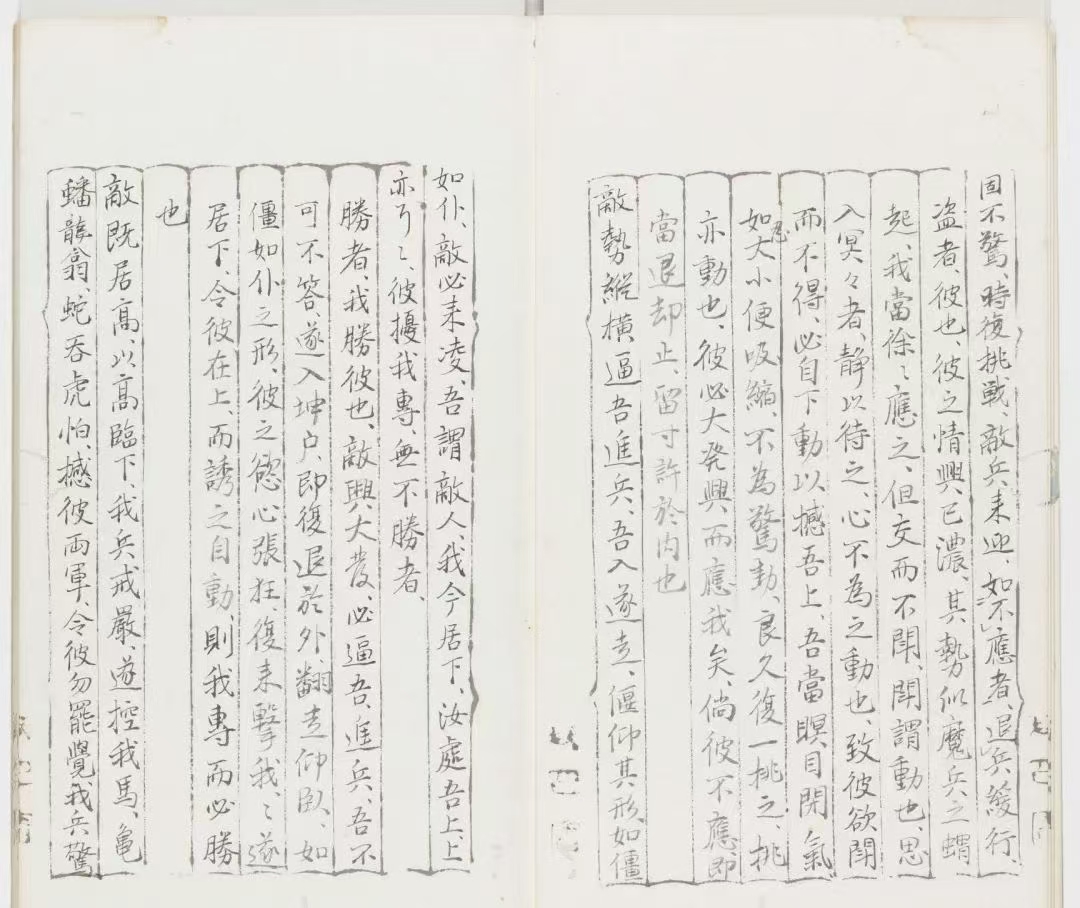 固不驚、時復挑戦、敵兵来迎、如不應者、退兵緩行、
盗者、彼也、彼之情興、已濃、其勢似魔兵之蝟
起、我當徐〻應之、但交而不閗、閗謂動也、思
入冥々者、静以待之、心不為之動也、致彼欲閗
而不得、必自下動以撼吾上、吾當瞑目閉氣、
如忍大小便吸縮、不為驚動、良久復一挑之、挑
亦動也、彼必大発興而應我矣、倘彼不應即
當退却止、留寸許於内也
敵勢縱横逼吾進兵、吾入遂走、偃仰其形、如僵
如仆、敵必来凌、吾謂敵人、我今居下、汝處吾上、上
亦了〻、彼擾我專、無不勝者、
勝者、我勝彼也、敵興大發、必逼吾、進兵、吾不
可不答、遂入坤户、即復退於外、翻走仰臥、如
僵如仆之形、彼之慾心張狂、復来擊我、〻遂
居下、令彼在上、而誘之自動、則我專而必勝
也
敵既居高、以高臨下、我兵戒嚴、遂控我馬、亀
蟠龍翕、蛇吞虎怕、撼彼両軍、令彼勿罷覺我兵驚